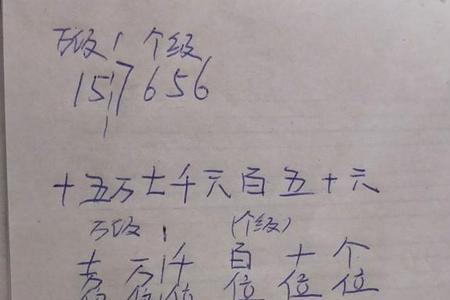 万级 | 个级
157656
十五万七千六百五十六
万级 | (个级)
十 万 | 千 百 十 个
位 位 位 位 位 位